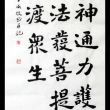 神通力護
法發菩提
渡眾生